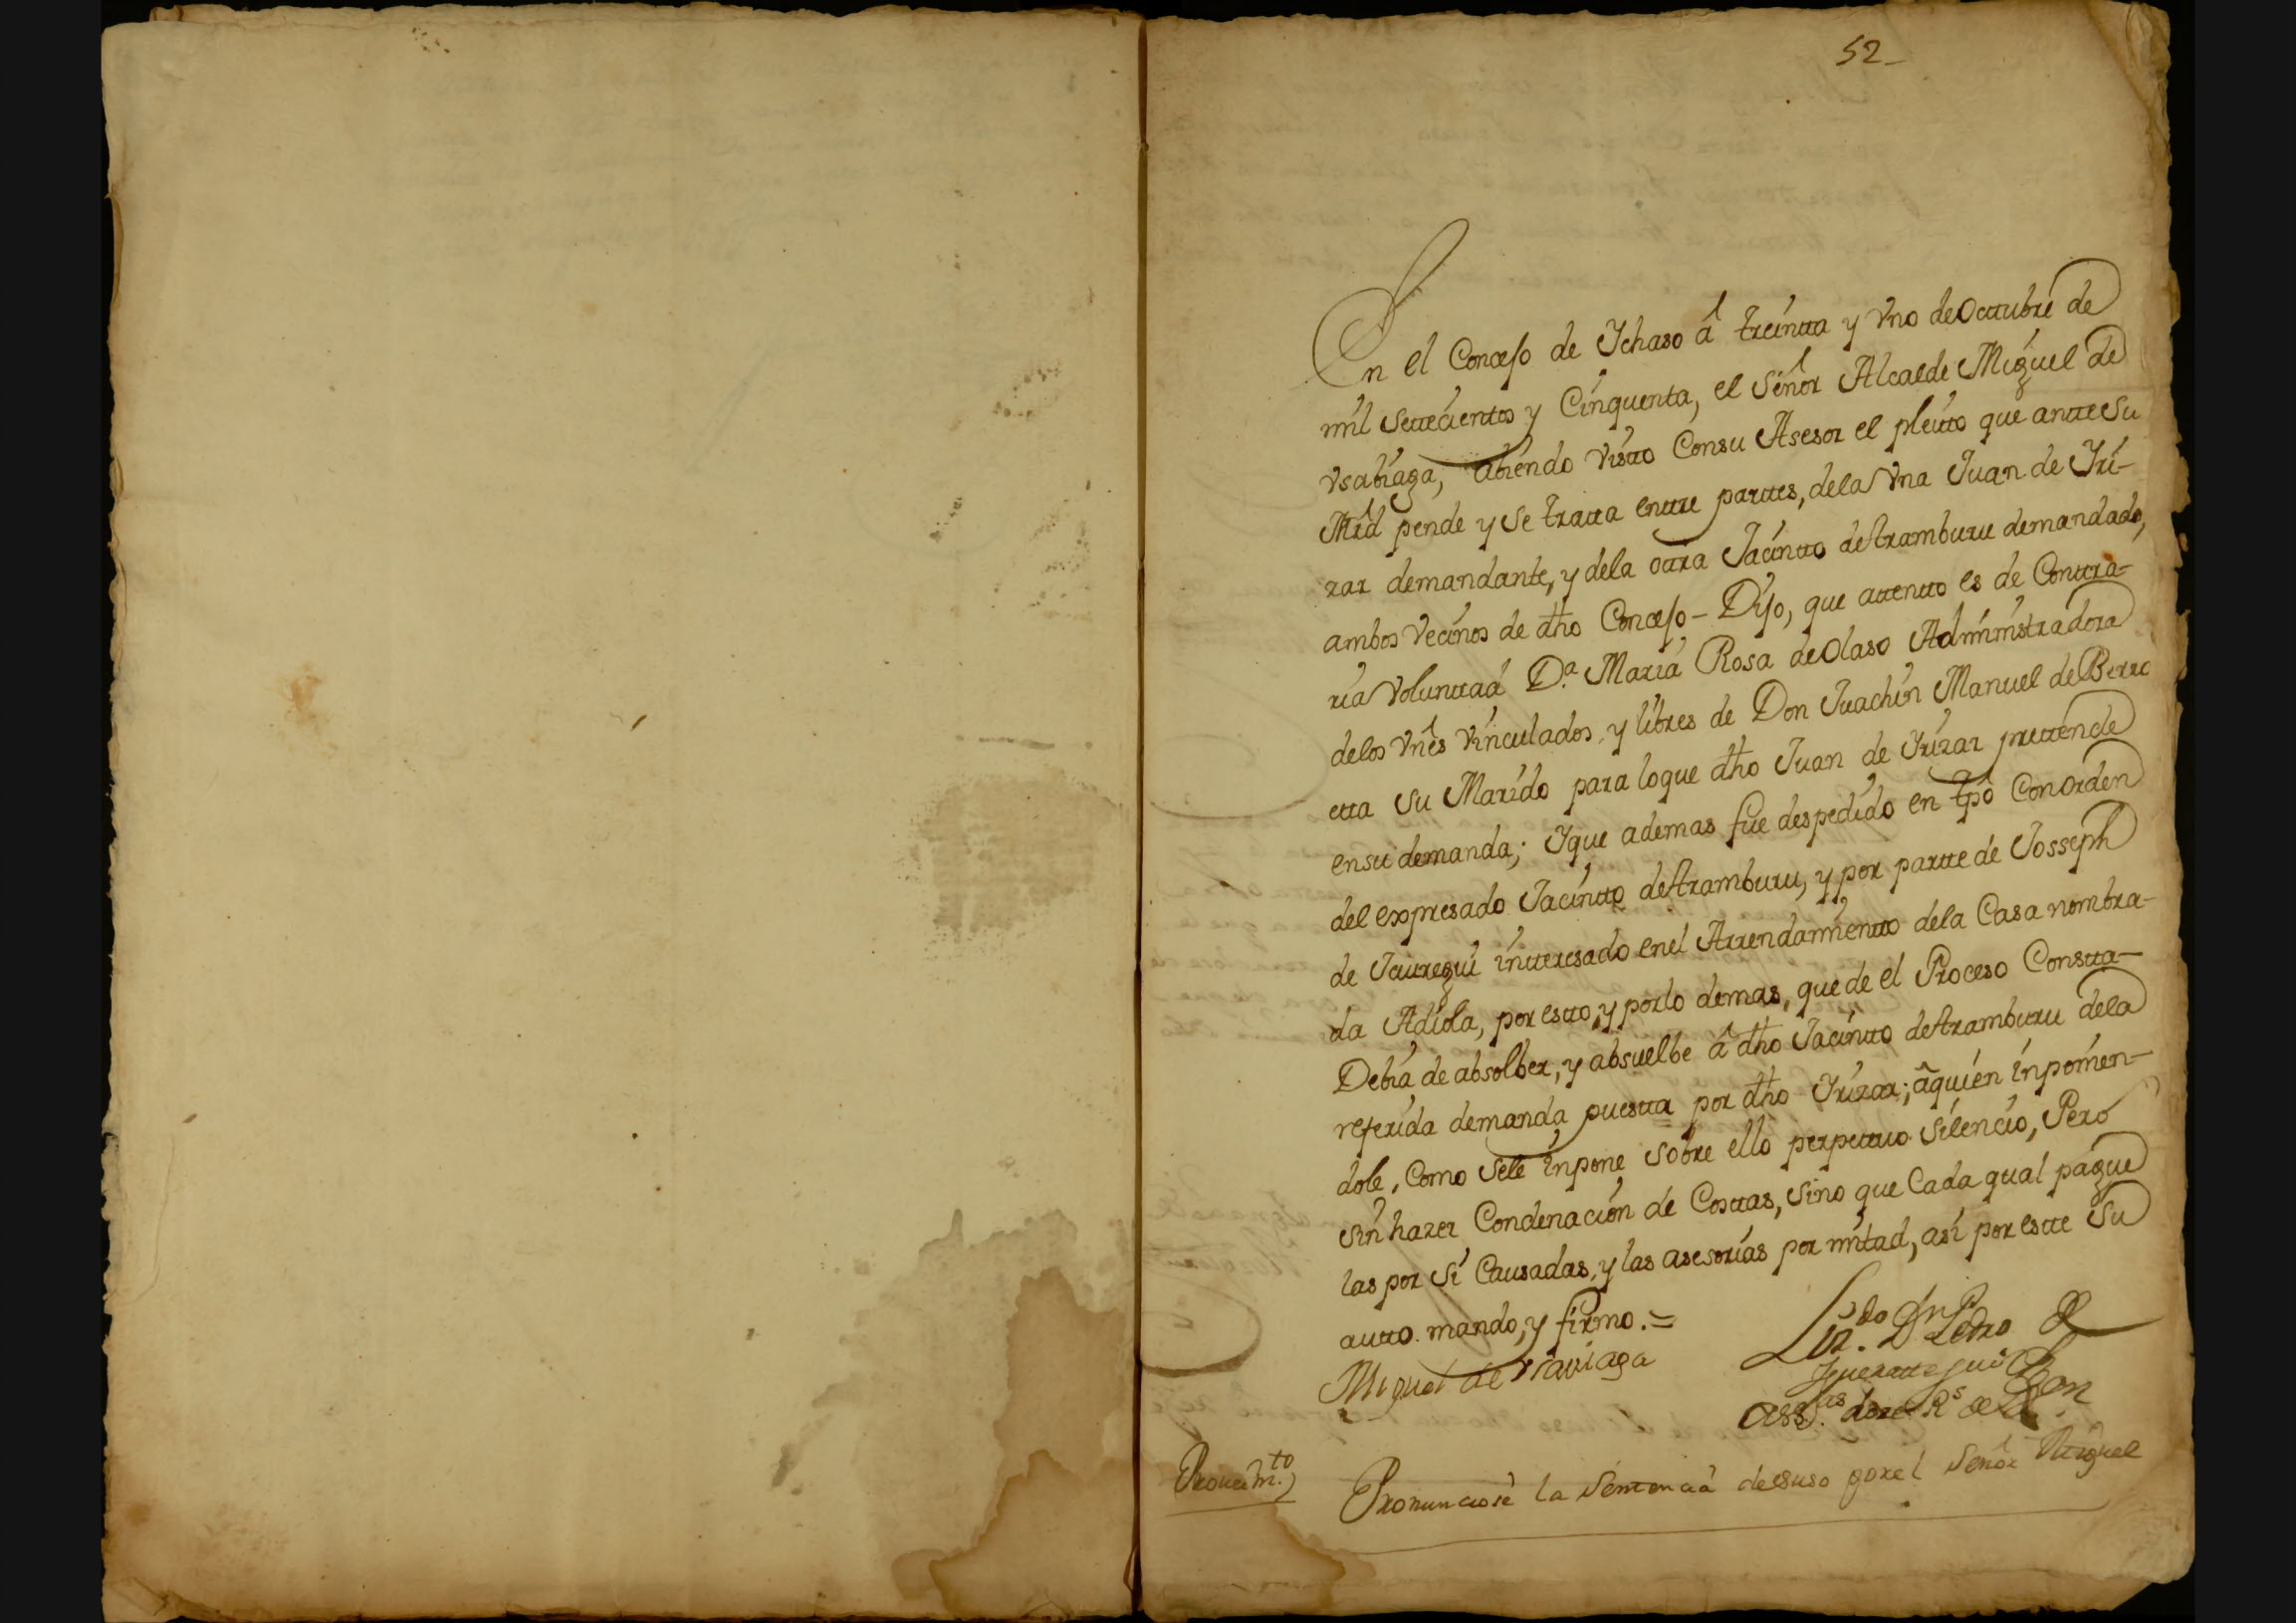 52
En el Concejo de Ychaso â treintta y Vno de Occtubre de
mil settecienttos y Cinquenta, el Señor Alcalde Miguel de
Vsabiaga, abiendo Vistto Consu Asesor el pleitto que antte Su
Mrd pende y se tratta enttre parttes, dela Vna Juan de Yri-
zar demandante, y dela ottra Jacintto de Aramburu demandado,
ambos Vecinos de dho Concejo - Dijo, que attentto es de Conttra-
ria Volunttad D.ª Maria Rosa de Olaso Administradora
delos Vnês Vinculados, y libres de Don Juachin Manuel de Berro
etta su Marido para loque dho Juan de Yrizar prettende
ensu demanda; Yque ademas fue despedido en tpô Con orden
del expresado Jacintto de Aramburu, y por partte de Josseph
de Jauregui intteresado enel Arrendamientto dela Casa nombra-
da Adiola, por estto, y porlo demas, que de el Proceso Constta-
Debia de absolber, y absuelbe â dho Jacintto de Aramburu dela
referida demanda puestta por dho Yrizar; âquien inponien-
dole, Como sele inpone sobre ello perpettuo Silencio, Pero
sin hazer Condenacion de Costtas, sino que Cada qual pague
las por si Causadas, y las asesorias por mitad, asi por estte su
autto. mando, y firmo. =
Miguel de Vsaviaga
Liz.do Dn Pedro de
ass.as doze Rs de
Proueim.to
Pronunciose la Sentencia desuso porel Señor Miguel